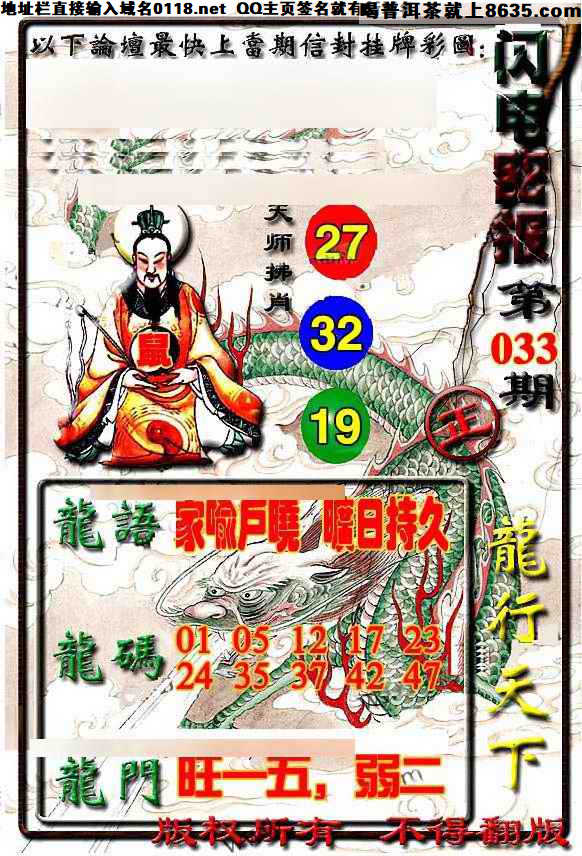 地址栏直接输入域名0118.net QQ主页签名就有
喝普洱茶就上8635.com
以下論壇最快上當期信封挂牌彩圖:
闪电
报
第
033
期
天师拂肖
27
32
19
鼠
正
龍語 家喻戶曉 曠日持久
龍碼 01 05 12 17 23
24 35 37 42 47
龍門 旺一五，弱二
龍行天下
版权所有 不得翻版